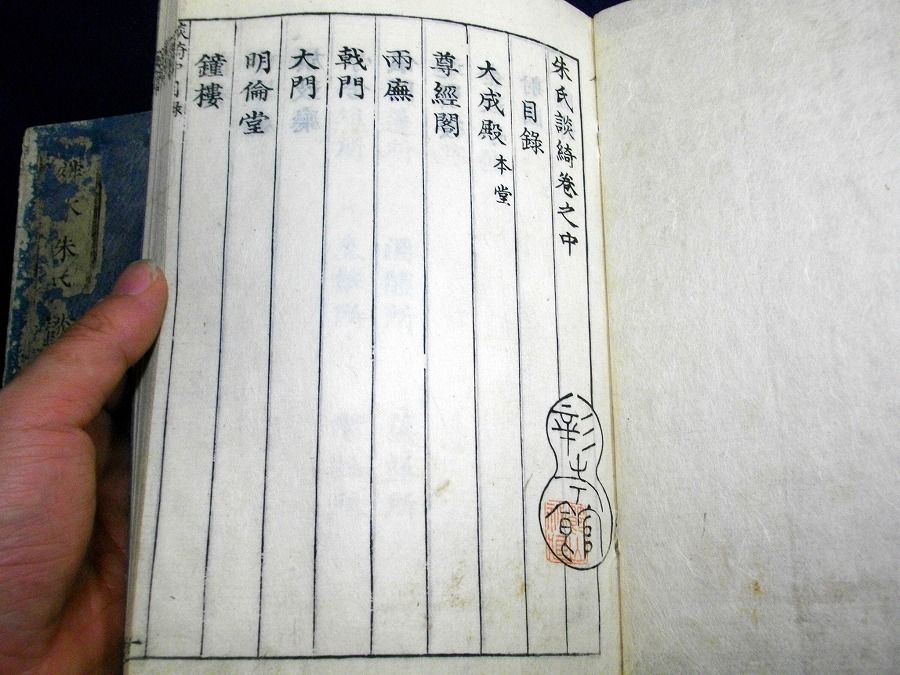 朱氏談綺卷之中
目錄
大成殿 本堂
尊經閣
兩廡
戟門
大門
明倫堂
鐘樓
彰考館
朱氏談